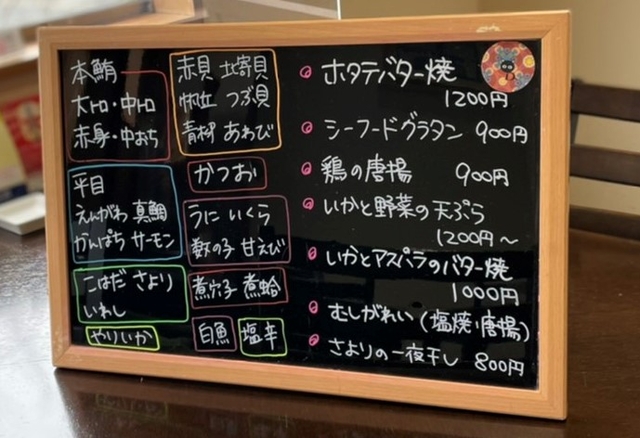 本鮪
大トロ・中トロ
赤身・中おち
平目
えんがわ 真鯛
かんぱち サーモン
こはだ さより
いわし
やりいか
赤貝 北寄貝
帆立 つぶ貝
青柳 あわび
かつお
うに いくら
数の子 甘えび
煮穴子 煮蛤
白魚
塩辛
ホタテバター焼
1200円
シーフードグラタン 900円
鶏の唐揚 900円
いかと野菜の天ぷら
1200円～
いかとアスパラのバター焼
1000円
むしがれい (塩焼・唐揚)
さよりの一夜干し 800円